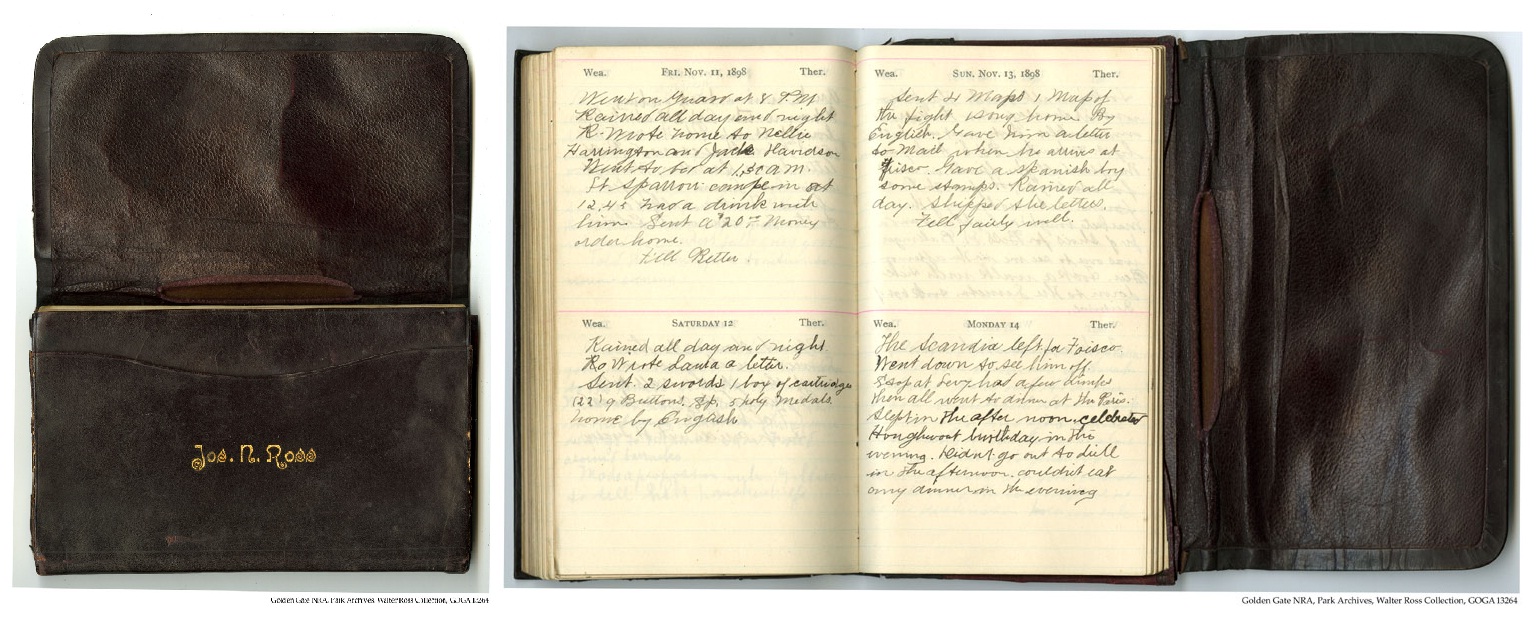 Jos. N. Ross
Golden Gate NRA, Park Archives, Walter Ross Collection, GOGA 13264
Wea. Fri. Nov. 11, 1898 Ther.
Went on Guard at 8 P.M
Rained all day and night
R. Wrote home to Nellie
Harrington and Jack Davidson
Went to bed at 1,30 a m.
Lt. Sparrow came in at
12.45 had a drink with
him. Sent a $20 Money
order home.
Fell Better.
Wea. Saturday 12 Ther.
Rained all day and night.
Ro Wrote Laura a letter.
Sent. 2 swords 1 box of cartridges
(22) 9 Buttons. Sp. 5 holy Medals.
home by
Wea. Sun. Nov. 13, 1898 Ther.
Sent 4 Maps 1 Map of
the fight song home. By
English. Gave him a letter
to Mail when he arrives at
Frisco. Gave a Spanish boy
some stamps. Rained all
day. Shipped the letters.
Fell fairly well.
Wea. Monday 14 Ther.
The Scandia left for Frisco.
Went down to see him off.
at Levy had a few
then all went to dinner at the Paris.
Slept in the after noon. celebrated
Houghwout birthday in the
evening. Didnt go out to drill
in the afternoon. couldnt eat
any dinner in the evening
Golden Gate NRA, Park Archives, Walter Ross Collection, GOGA 13264